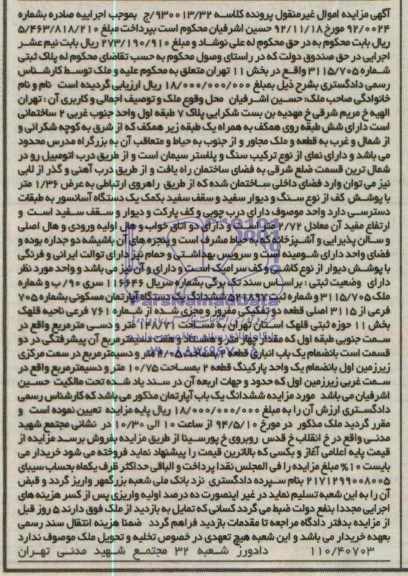 آگهی مزایده اموال غیرمنقول پرونده کلاسه ۹۳۰۰۱۳/۳۲/ج بموجب اجراییه صادره بشماره
۹۲/۰۰۲۴ مورخ ۹۲/۱۱/۱۸ حسین اشرفیان محکوم است بپرداخت مبلغ ۵/۴۶۳/۸۱۸/۲۱۰
ریال بابت محکوم به در حق محکوم له علی نوشاد و مبلغ ۲۷۳/۱۹۰/۹۱۰ ریال بابت نیم عشر
اجرایی در حق صندوق دولت که در راستای وصول محکوم به حسب تقاضای محکوم له پلاک ثبتی
شماره ۳۱۱۵/۷۰۵ واقع در بخش ۱۱ تهران متعلق به محکوم علیه و ملک توسط کارشناس
رسمی دادگستری بشرح ذیل بمبلغ ۱۸/۰۰۰/۰۰۰/۰۰۰ ریال ارزیابی گردیده است نام و نام
خانوادگی صاحب ملک: حسین اشرفیان محل وقوع ملک و توصیف اجمالی و کاربری آن: تهران
الهیه خ مریم شرقی خ مهدیه بن بست شکرایی پلاک ۷ طبقه اول واحد جنوب غربی ۲ ساختمانی
است دارای شش طبقه روی همکف به همراه یک طبقه زیر همکف که از شرق به کوچه شکرائی و
از شمال و غرب به قطعه و ملک مجاور و از جنوب به حیاط و متعاقب آن به بزرگراه مدرس محدود
می باشد و دارای نمای از نوع ترکیب سنگ و پلاستر سیمان است و از طریق درب اتومبیل رو در
شمال ترین قسمت ضلع شرقی به فضای ساختمان راه یافت و از طریق درب آهنی و گذر از لابی
نیز می توان وارد فضای داخلی ساختمان شده که از طریق راهروی ارتباطی به عرض ۱/۳۶ متر
با پوشش کف از نوع سنگ و دیوار سفید و سقف سفید بکمک یک دستگاه آسانسور به طبقات
دسترسی دارد واحد موصوف دارای درب چوبی و کف پارکت و دیوار و سقف سفید است و
ارتفاع مفید آن معادل ۲/۷۲ متر است و دارای دو اتاق خواب و هال اولیه ورودی و هال اصلی
و سالن پذیرایی و آشپزخانه که به حیاط مشرف است و پنجره های آن باشیشه دو جداره بوده و
فضای واحد دارای شومینه است و سرویس بهداشتی و حمام نیز دارای توالت ایرانی و فرنگی
با پوشش دیوار از نوع کاشی و کف سرامیک است و دارای و آن نیز می باشد و واحد مورد نظر
دارای وضعیت ثبتی: براساس سند تک برگی بشماره سریال ۱۱۶۶۴۶ سری ۹۰/ب و شماره
ملک ۳۱۱۵/۷۰۵ و شماره ثبت ۵۲۱۸۹۷ ششدانگ یک دستگاه آپارتمان مسکونی بشماره ۷۰۵
فرعی از ۳۱۱۵ اصلی قطعه دو تفکیکی مفروز و مجزی شده از شماره ۷۶۱ فرعی ناحیه قلهک
بخش ۱۱ حوزه ثبتی قلهک استان تهران به مساحت ۱۴۸/۷۱ متر و دسی مترمربع واقع در
سمت جنوبی طبقه اول که مقدار چهار متر و دسیمترمربع آن پیشرفتگی در دو
قسمت است بانضمام یک باب انباری قطعه ۲ بمساحت دسیمترمربع در سمت مرکزی
زیرزمین اول بانضمام یک واحد پارکینگ قطعه ۲ بمساحت ۱۰/۷۵ متر و دسیمترمربع واقع در
سمت غربی زیرزمین اول که حدود و جهات اربعه آن در سند یاد شده تحت مالکیت حسین
اشرفیان می باشد مورد مزایده ششدانگ یک باب آپارتمان مذکور می باشد که کارشناس رسمی
دادگستری ارزش آن را به مبلغ ۱۸/۰۰۰/۰۰۰/۰۰۰ ریال پایه مزایده تعیین نموده است و
مقرر گردید ملک مذکور در مورخ ۹۴/۵/۱۰ از ساعت ۱۰ الی ۱۰/۳۰ در نشانی مجتمع شهید
مدنی واقع در خ انقلاب خ قدس روبروی خ پورسینا از طریق مزایده بفروش برسد مزایده از
قیمت پایه اعلامی آغاز و بکسی که بالاترین قیمت را پیشنهاد نماید فروخته می شود خریدار می
بایست ۱۰% مبلغ مزایده را فی المجلس نقدا پرداخت و الباقی حداکثر ظرف یکماه بحساب سیبای
۲۱۷۱۲۹۹۰۰۸۰۰۵ بنام سپرده دادگستری نزد بانک ملی شعبه بزرگمهر واریز گردد و قبض
آن را به این شعبه تسلیم نماید در غیر اینصورت ده درصد اولیه واریزی پس از کسر هزینه های
اجرایی مجددا بنفع دولت ضبط می گردد کسانی که تمایل به بازدید از ملک فوق دارند ۵ روز قبل
از مزایده بدفتر دادگاه مراجعه تا مقدمات بازدید فراهم گردد ضمنا هزینه انتقال سند رسمی
بعهده خریدار می باشد و این شعبه هیچ تعهدی در خصوص تخلیه و تحویل ملک موصوف ندارد
۱۱۰/۴۰۷۰۳ دادورز شعبه ۳۲ مجتمع شهید مدنی تهران